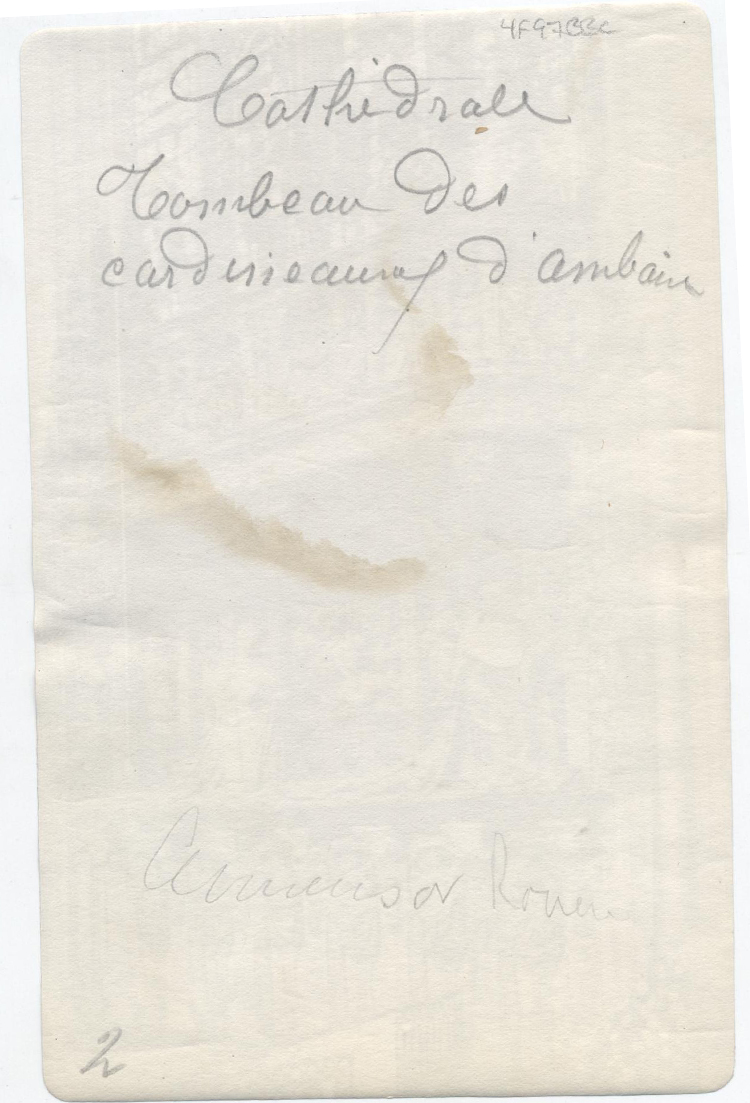 4F97BBC
Cathédrale
Tombeau des
cardineaux d'ambaise
or Rouen
2